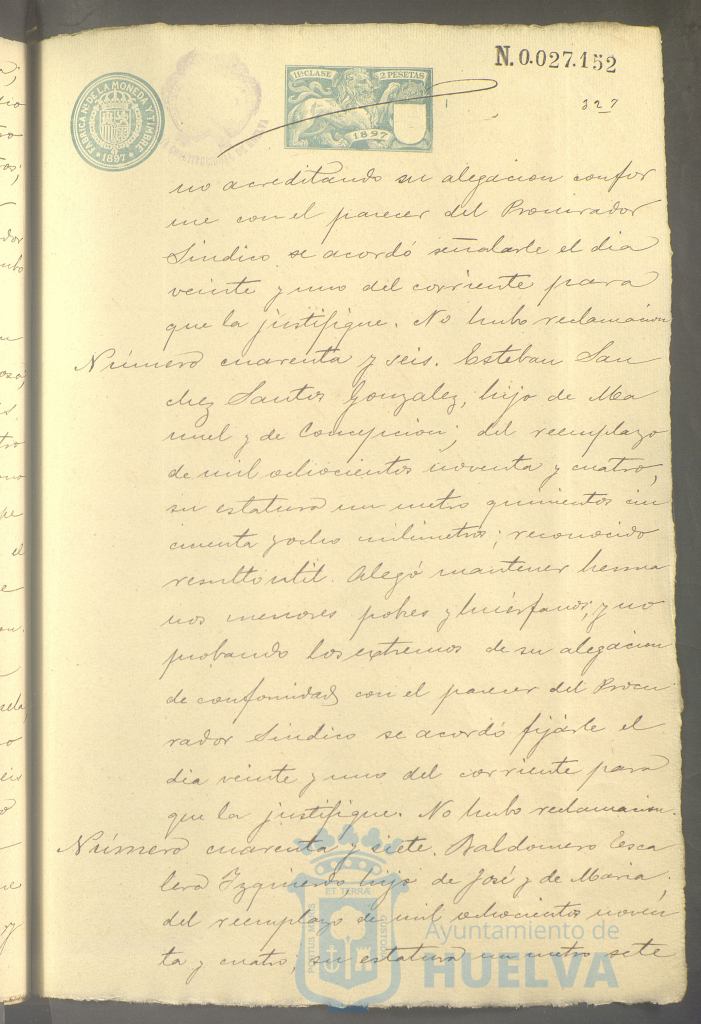 N.0.027.152
FABRICA NL. DE LA MONEDA Y TIMBRE
1897
11ª CLASE 2 PESETAS
1897
327
no acreditando su alegacion confor
me con el parecer del Procurador
Sindico se acordó señalarle el dia
veinte y uno del corriente para
que la justifique. No hubo reclamacion
Número cuarenta y seis. Esteban San
chez Santos Gonzalez, hijo de Ma
nuel y de Concepcion; del reemplazo
de mil ochocientos noventa y cuatro,
su estatura un metro quinientos cin
cuenta y ocho milimetros; reconocido
resultó util. Alegó mantener herma
nos menores pobres y huérfanos, y no
probando los extremos de su alegacion
de conformidad con el parecer del Procu
rador Sindico se acordó fijarle el
dia veinte y uno del corriente para
que la justifique. No hubo reclamacion.
Número cuarenta y siete. Baldomero Esca
lera Izquierdo hijo de José y de Maria,
del reemplazo de mil ochocientos noven
ta y cuatro, su estatura un metro sete
PORTUS MARIS ET TERRÆ CUSTODIA
Ayuntamiento de
HUELVA